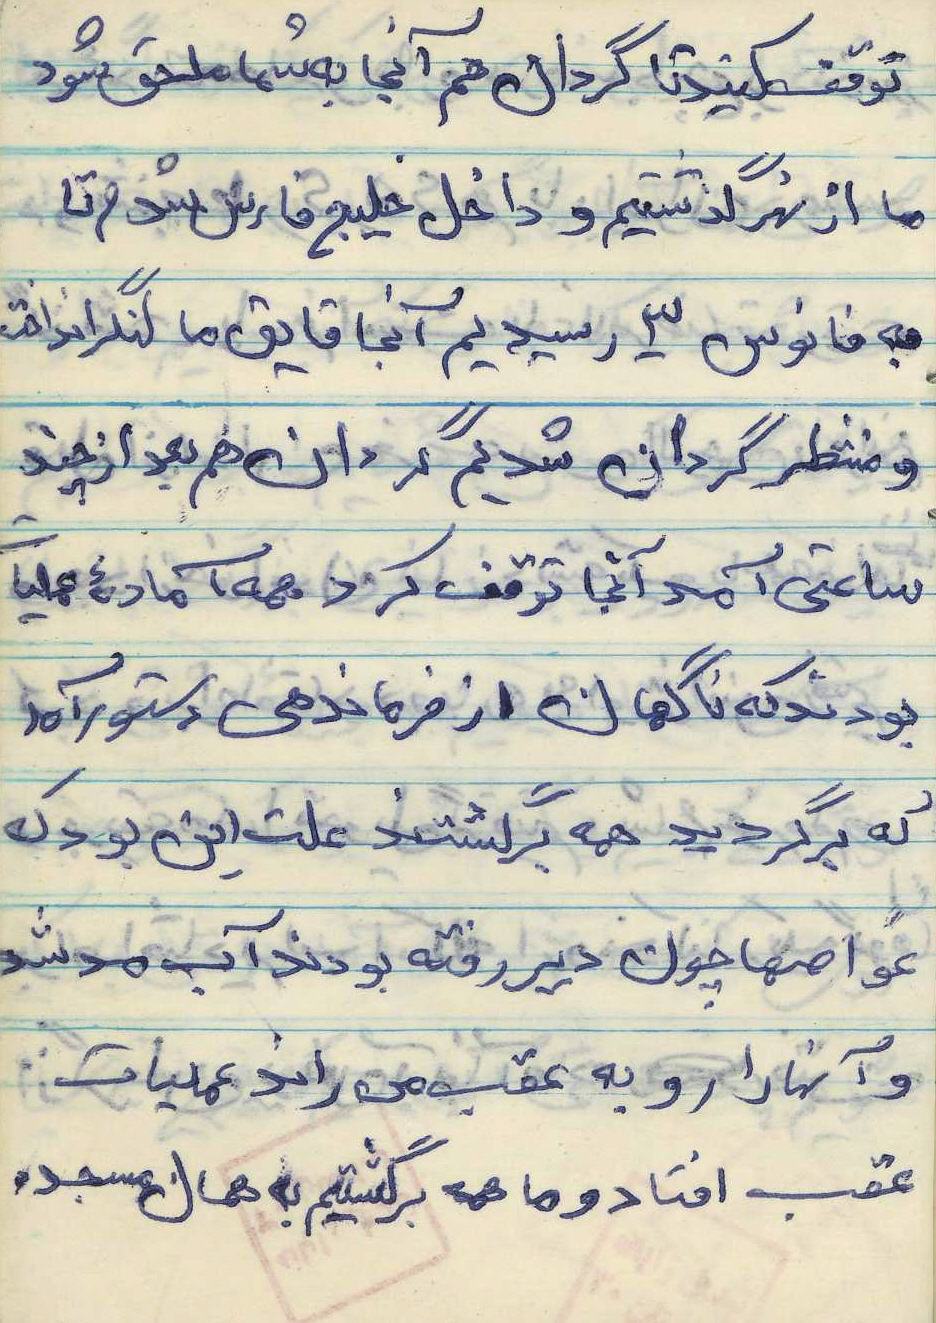 توقف کنید تا گردان هم آنجا به شما ملحق شود
ما از نهر گذشتیم و داخل خلیج فارس شدیم تا
به فانوس ۳ رسیدیم آنجا قایق ما لنگر انداخت
و منتظر گردان شدیم گردان هم بعد از چند
ساعتی آمد آنجا توقف کرد همه آمادهٔ عملیات
بودند که ناگهان از فرماندهی دستور آمد
که برگردید همه برگشتند علت این بود که
غواصها چون دیر رفته بودند آب مد شد
و آنها را رو به عقب می راند عملیات
عقب افتاد و ما همه برگشتیم به همان مسجد.